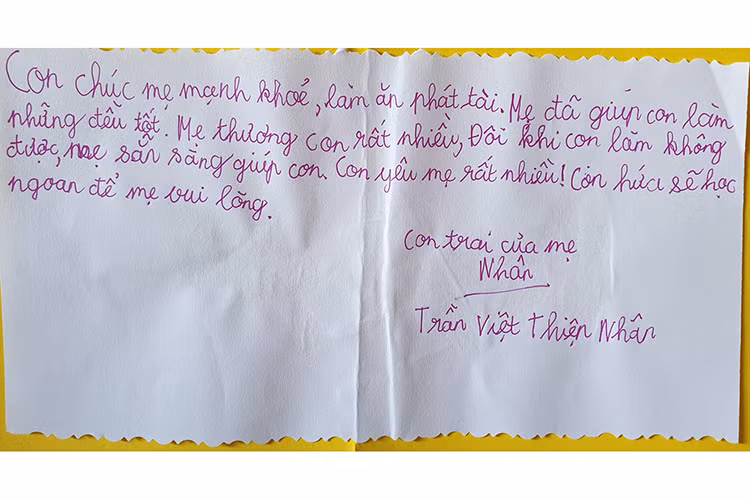 Con chúc mẹ mạnh khoẻ, làm ăn phát tài. Mẹ đã giúp con làm
những đều tốt. Mẹ thương con rất nhiều, Đôi khi con làm không
được, mẹ sẵn sàng giúp con. Con yêu mẹ rất nhiều! Con hứa sẽ học
ngoan để mẹ vui lòng.
Con trai của mẹ
Nhân
Trần Việt Thiện Nhân